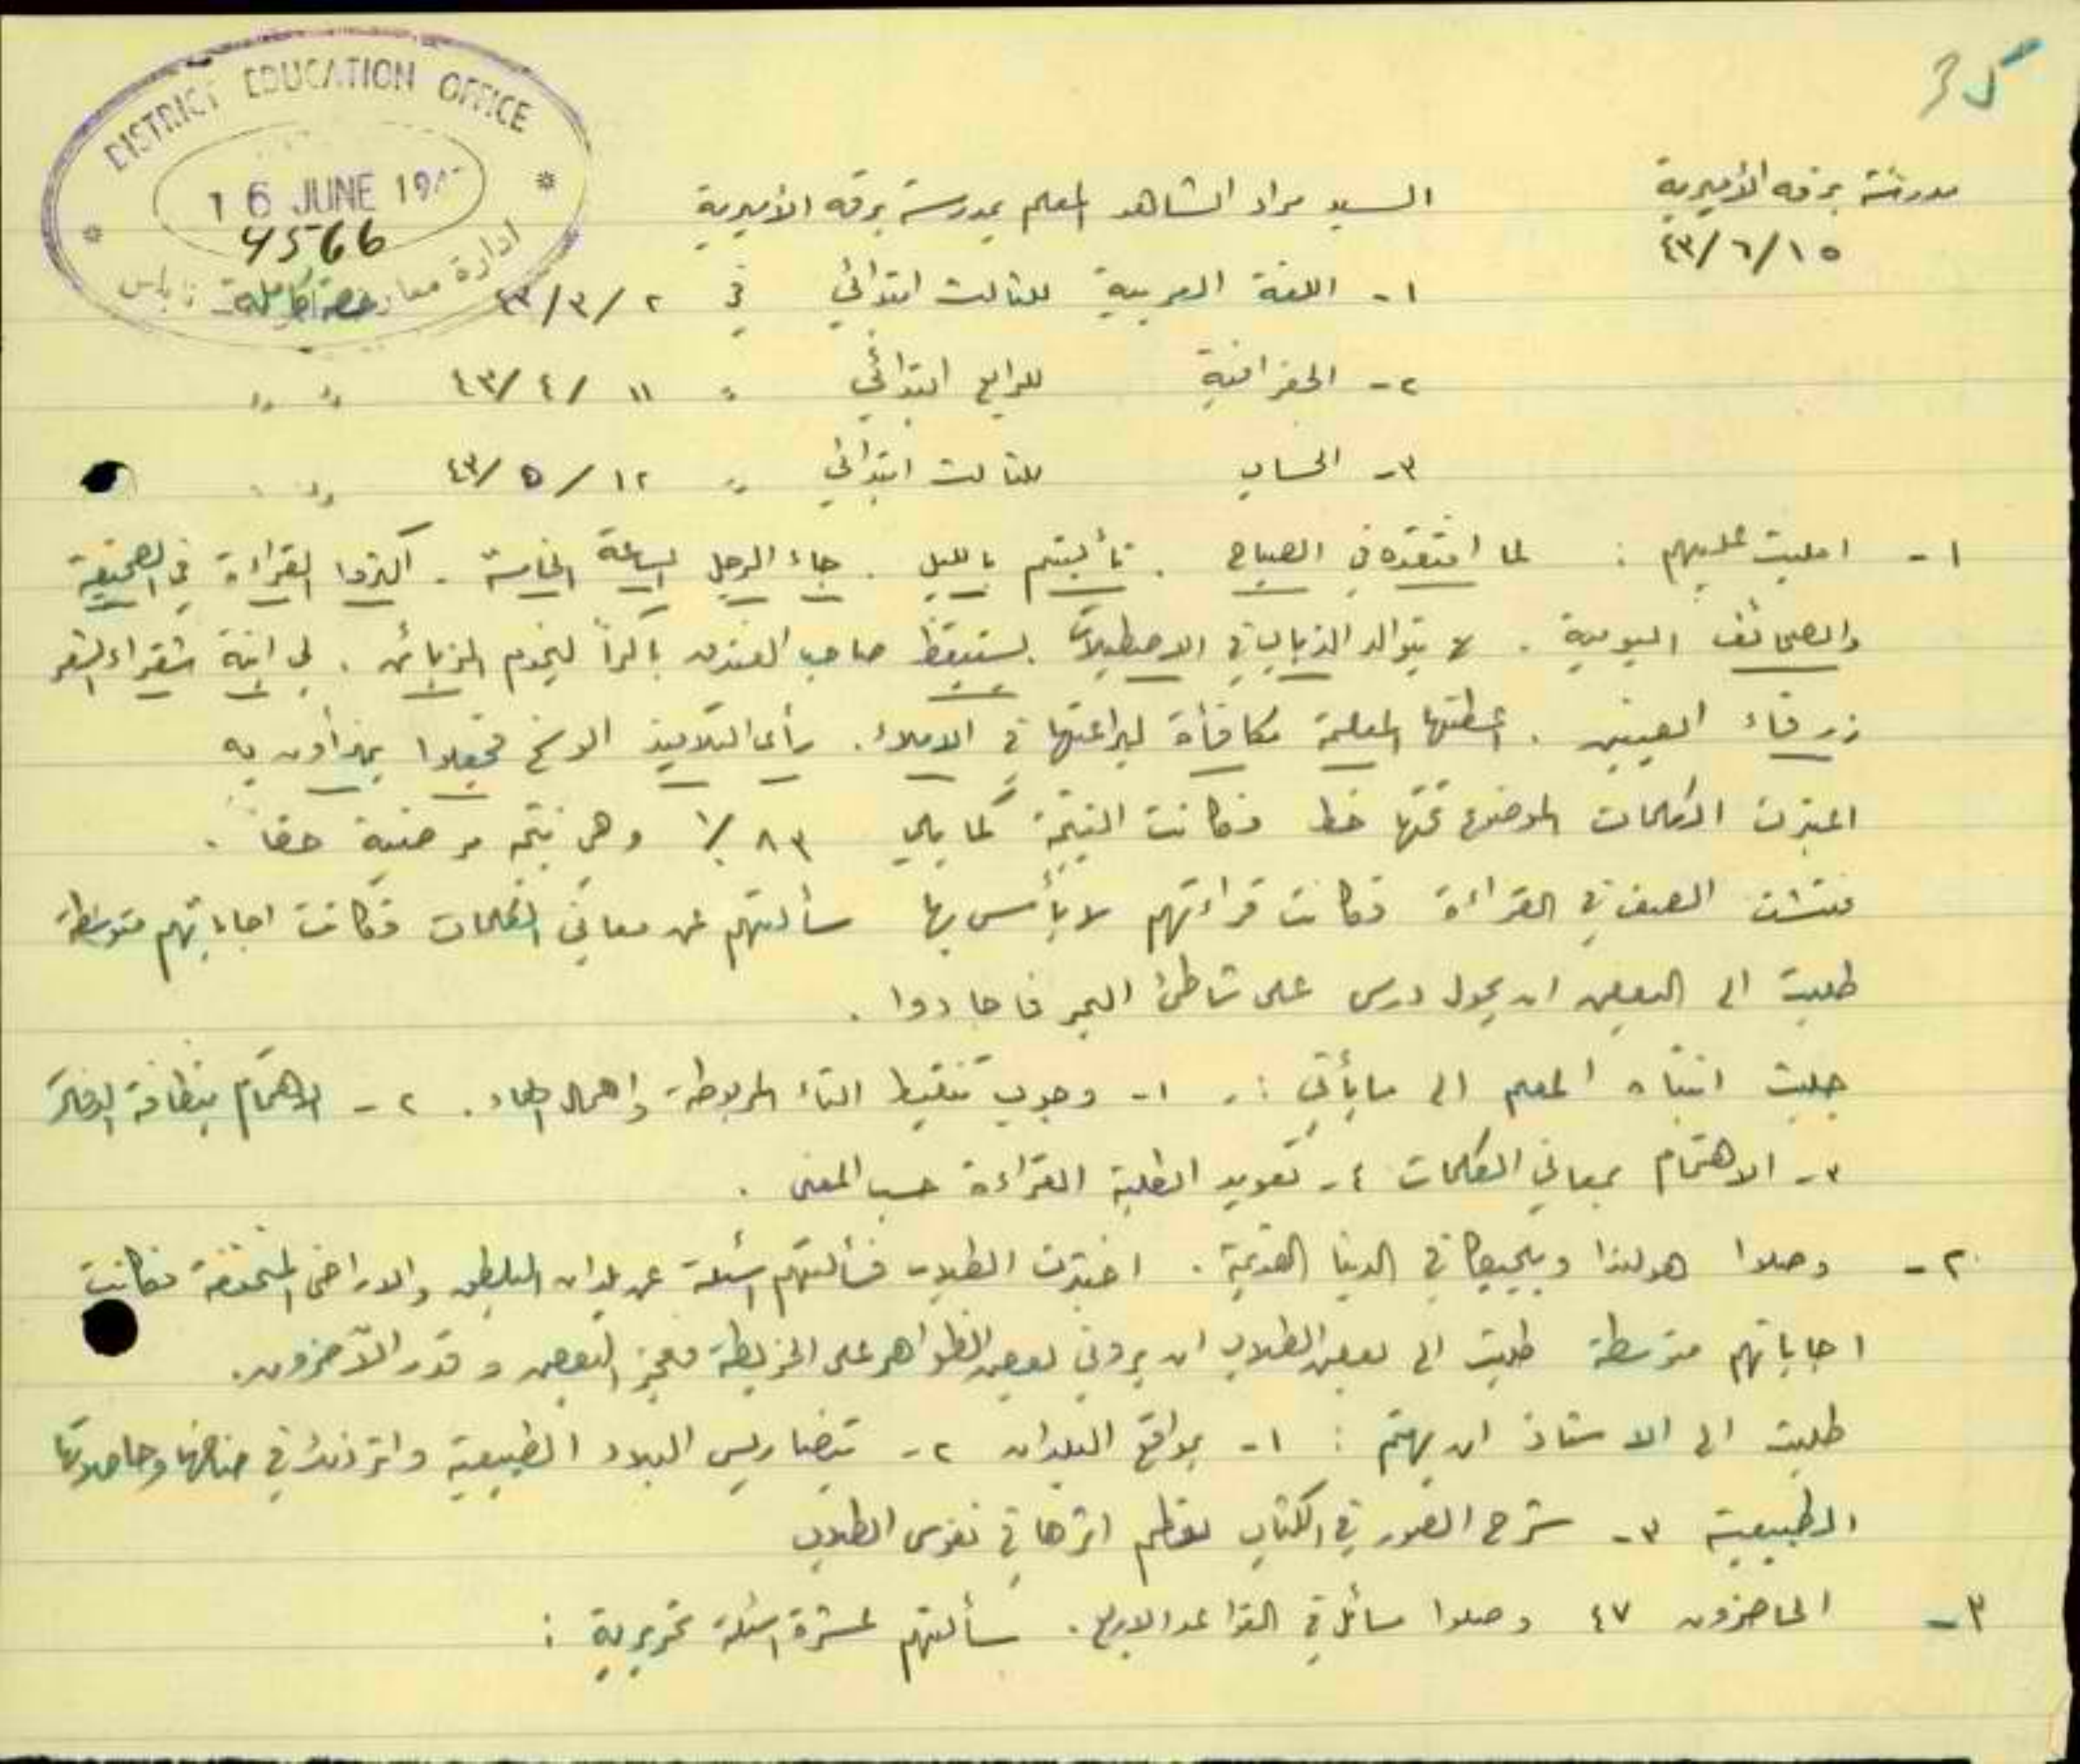 35
DISTRICT EDUCATION OFFICE
16 JUNE 194
4566
ادارة معارف نابلس
مدرسة برقه الأميرية
١٥/٦/٤٣
السيد مراد الشاهد المعلم بمدرسة برقه الأميرية
١- اللغة العربية للثالث ابتدائي في ٢/٣/٤٣ حصة كاملة
٢- الجغرافية للرابع ابتدائي " ١١/٤/٤٣ " "
٣- الحساب للثالث ابتدائي " ١٢/٥/٤٣ " "
١- امليت عليهم : لما افتقده في الصباح . بالليل . جاء الرجل الساعة الخامسة . اكثروا القراءة في الصحيفة
والصحائف اليومية . لا يتوالد الذباب في الاصطبلات . يستيقظ صاحب الفندق باكراً ليخدم الزبائن . لي ابنة شقراء الشعر
زرقاء العينين . اعطتها المعلمة مكافأة لبراعتها في الاملاء . رأى التلاميذ الوسخ فجعلوا يهزأون به
اعتبرت الكلمات الموضوع تحتها خط فكانت النتيجة كما يلي ٨٣ ٪ وهي نتيجة مرضية حقاً .
فتشت الصف في القراءة فكانت قراءتهم لا بأس بها سألتهم عن معاني الكلمات فكانت اجاباتهم متوسطة
طلبت الى البعض ان يحول درس على شاطئ البحر فاجادوا .
جلبت انتباه المعلم الى ما يأتي :- ١- وجوب تنقيط التاء المربوطة واهمال الهاء . ٢- الاهتمام بنظافة الدفاتر
٣- الاهتمام بمعاني الكلمات ٤- تعويد الطلبة القراءة حسب المعنى .
٢- وصلوا هولندا وبلجيكا في الدنيا القديمة . اختبرت الطلاب فسألتهم اسئلة عن بلدان البلطيق والاراضي المنخفضة فكانت
اجاباتهم متوسطة طلبت الى بعض الطلاب ان يروني بعض الظواهر على الخريطة فعجز البعض وقدر الآخرون .
طلبت الى الاستاذ ان يهتم : ١- بمواقع البلدان ٢- بتضاريس البلاد الطبيعية واثر ذلك في مناخها وحاصلاتها
الطبيعية ٣- شرح الصور في الكتاب لعظم اثرها في نفوس الطلاب
٣- الحاضرون ٤٧ وصلوا مسائل في القواعد الاربع . سألتهم عشرة اسئلة تحريرية :